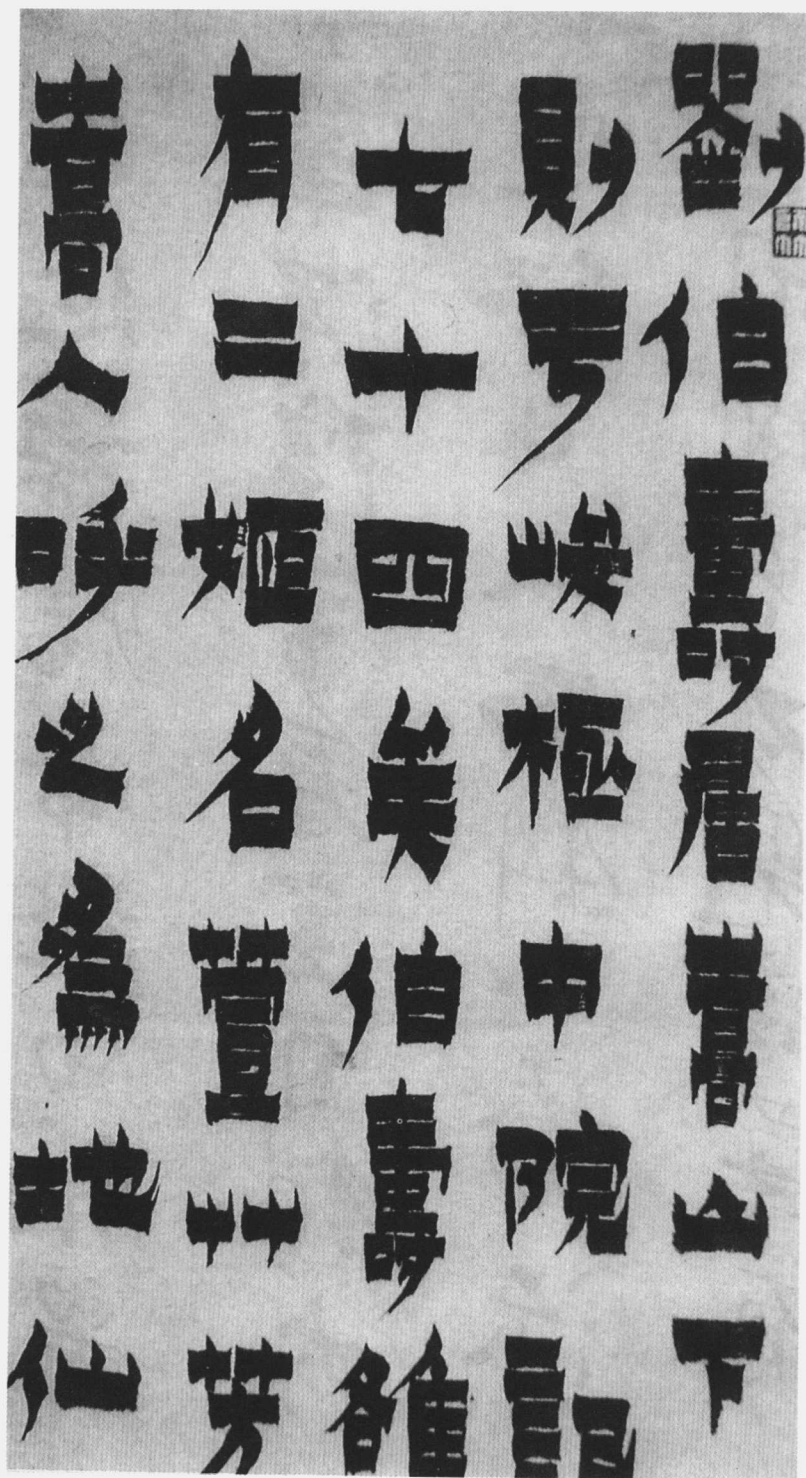 劉伯壽居嵩山下
則亏峻極中院記
七十四矣伯壽雒
有二姬名萱艸芳
嵩人呼之爲地仙